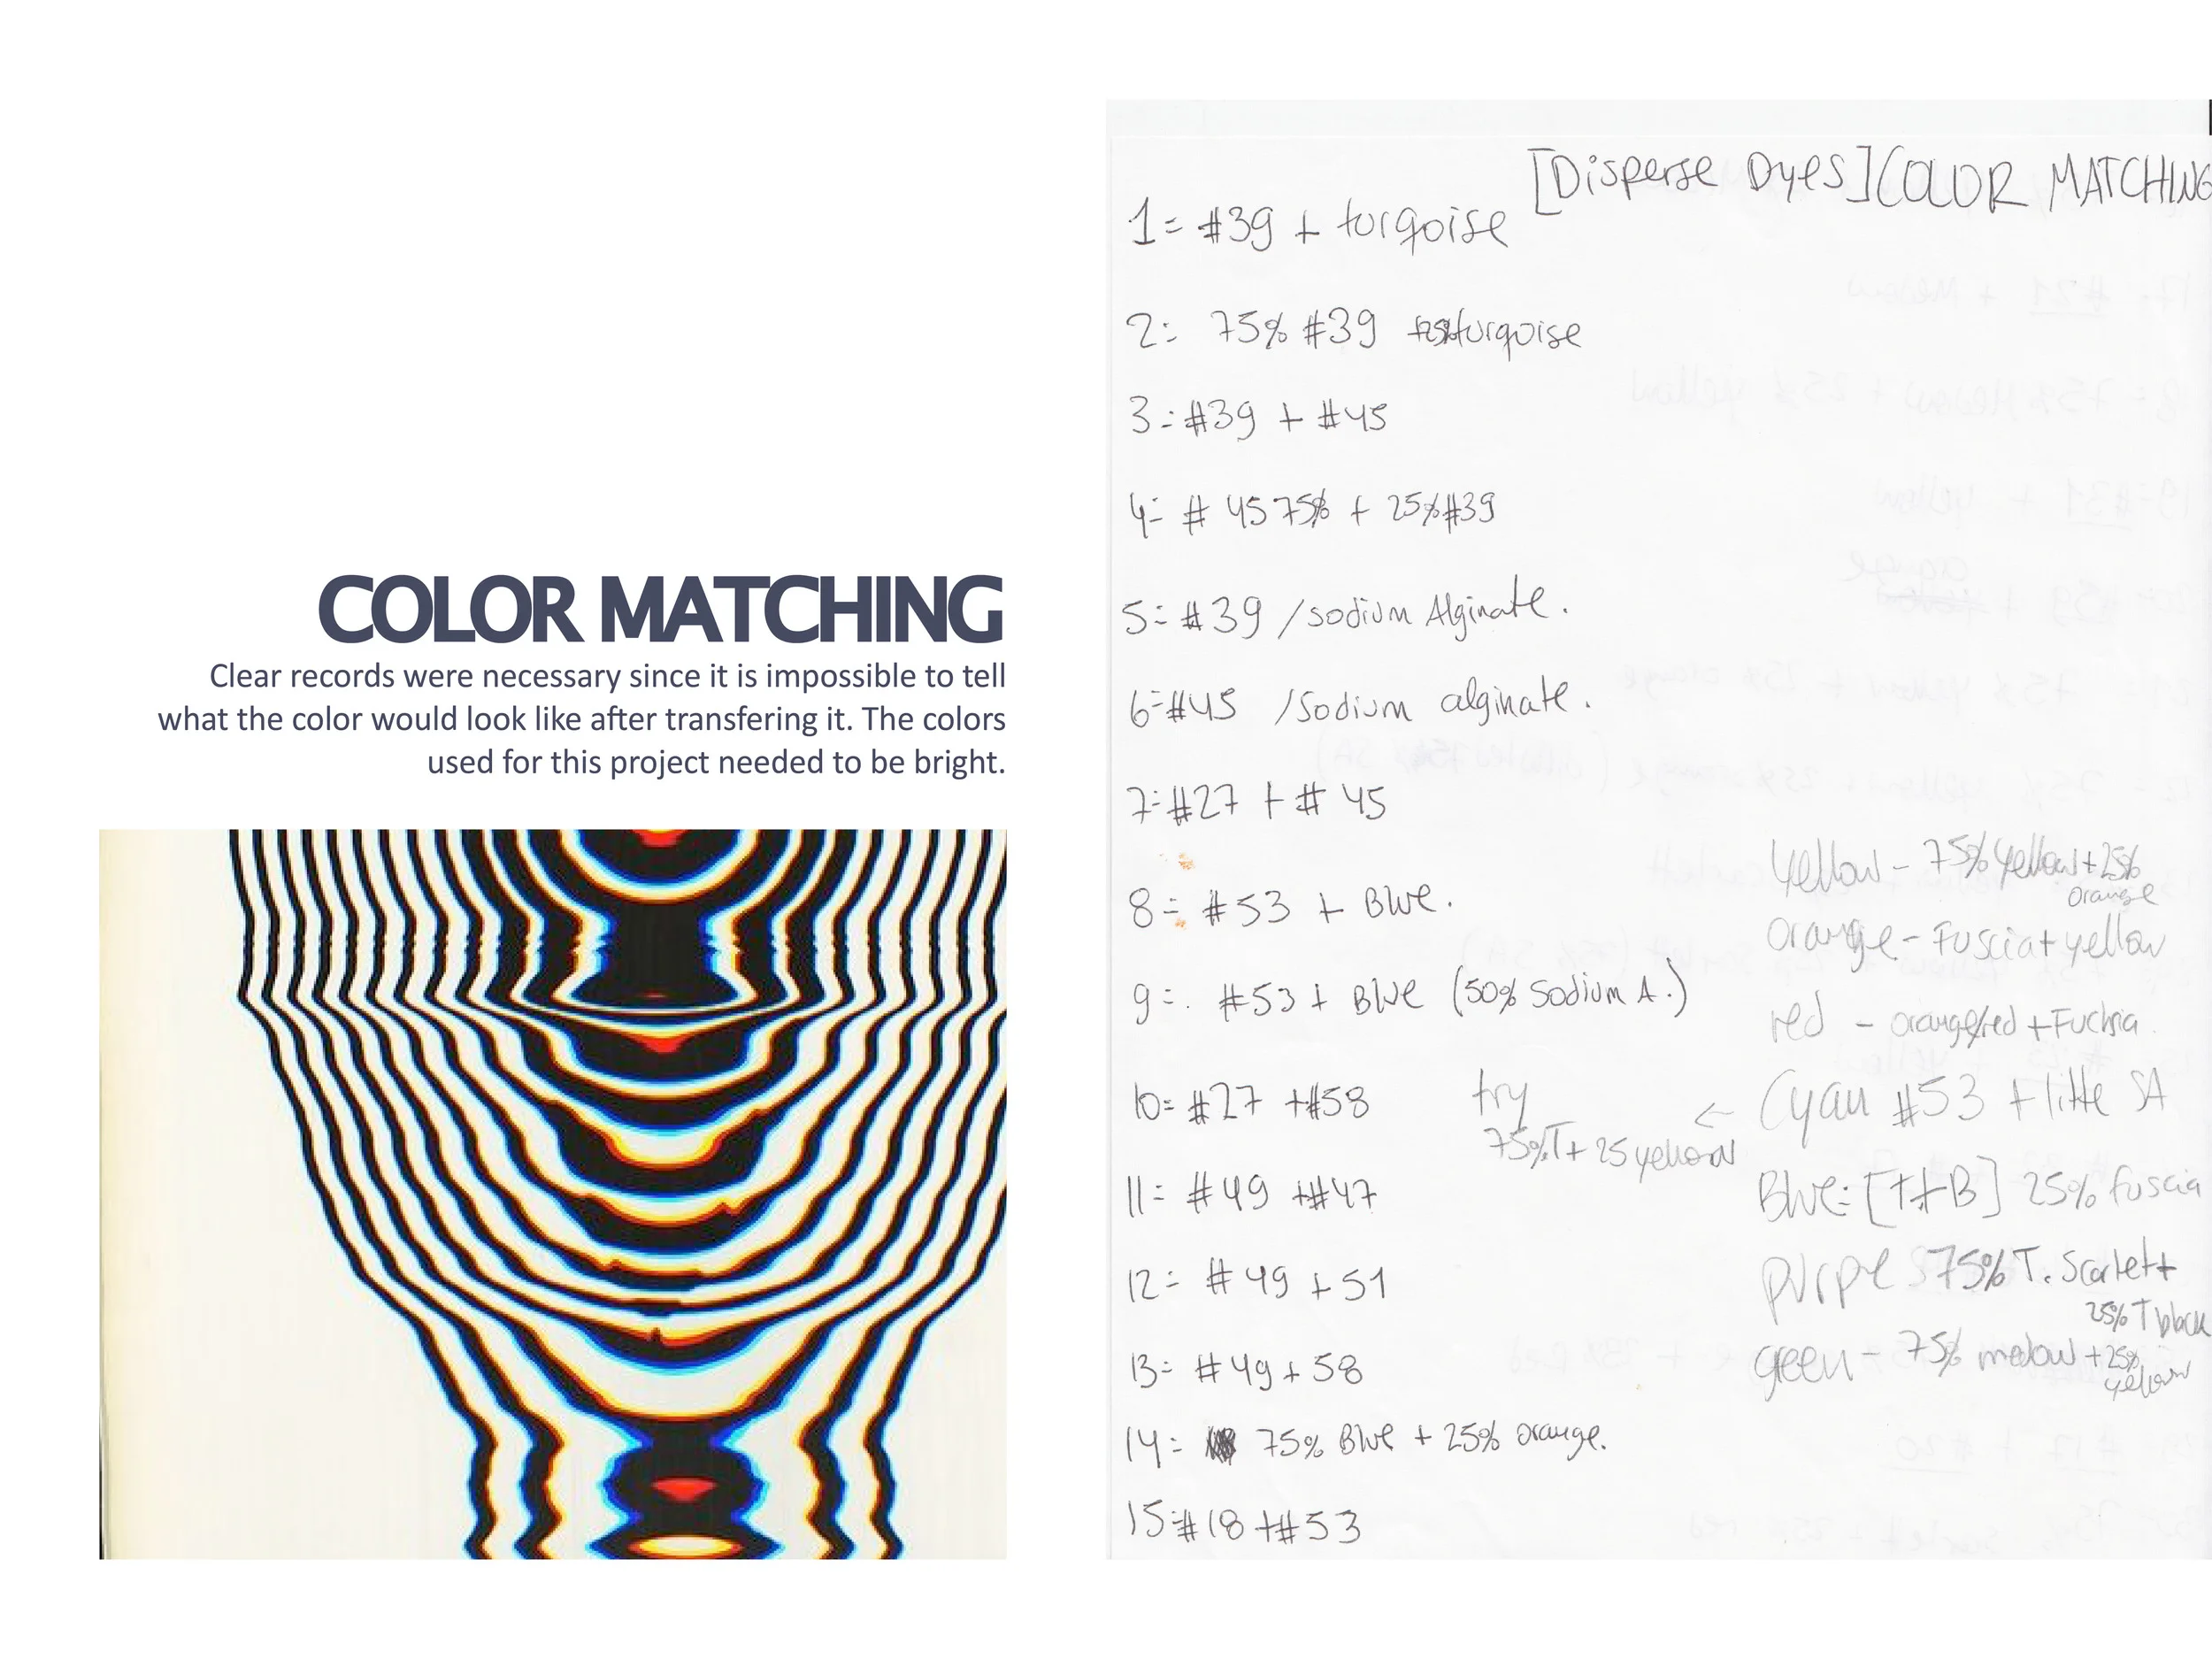 COLOR MATCHING
Clear records were necessary since it is impossible to tell
what the color would look like after transfering it. The colors
used for this project needed to be bright.
[Disperse Dyes] COLOR MATCHING
1= #39 + turqoise
2= 75% #39 + turqoise
3= #39 + #45
4= # 45 75% + 25% #39
5= #39 / sodium Alginate.
6= #45 / Sodium alginate.
7= #27 + # 45
8= #53 + Blue.
9=. #53 + Blue (50% Sodium A.)
10= #27 + #58
11= #49 + #47
12= #49 + 51
13= #49 + 58
14= 75% Blue + 25% orange.
15= #18 + #53
yellow - 75% yellow + 25%
orange
orange - Fuscia + yellow
red - orange/red + Fuchsia.
try ← Cyan #53 + little SA
75% T + 25 yellow
Blue: [T + B] 25% fuscia
purpel 75% T. Scarlet +
25% T black
green - 75% medow + 25%
yellow